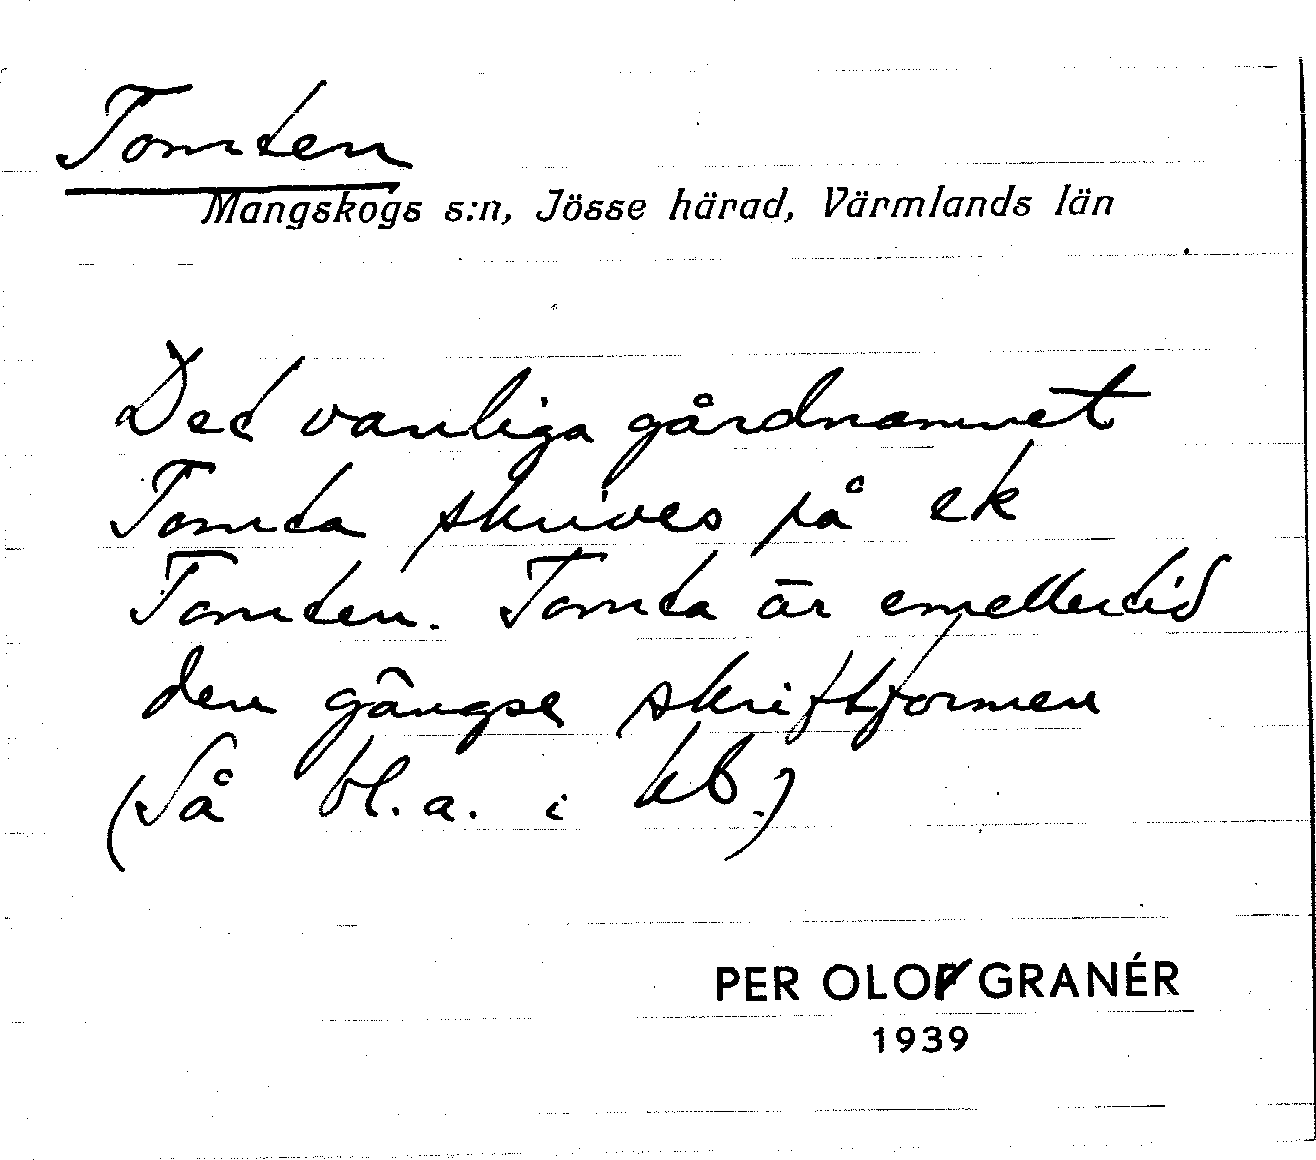 Tomten
Mangskogs s:n, Jösse härad, Värmlands län
Det vanliga gårdnamnet
Tomta skrives på ek
Tomten. Tomta är emellertid
den gängse skriftformen
(Så bl.a. i kb.)
PER OLOF GRANÉR
1939